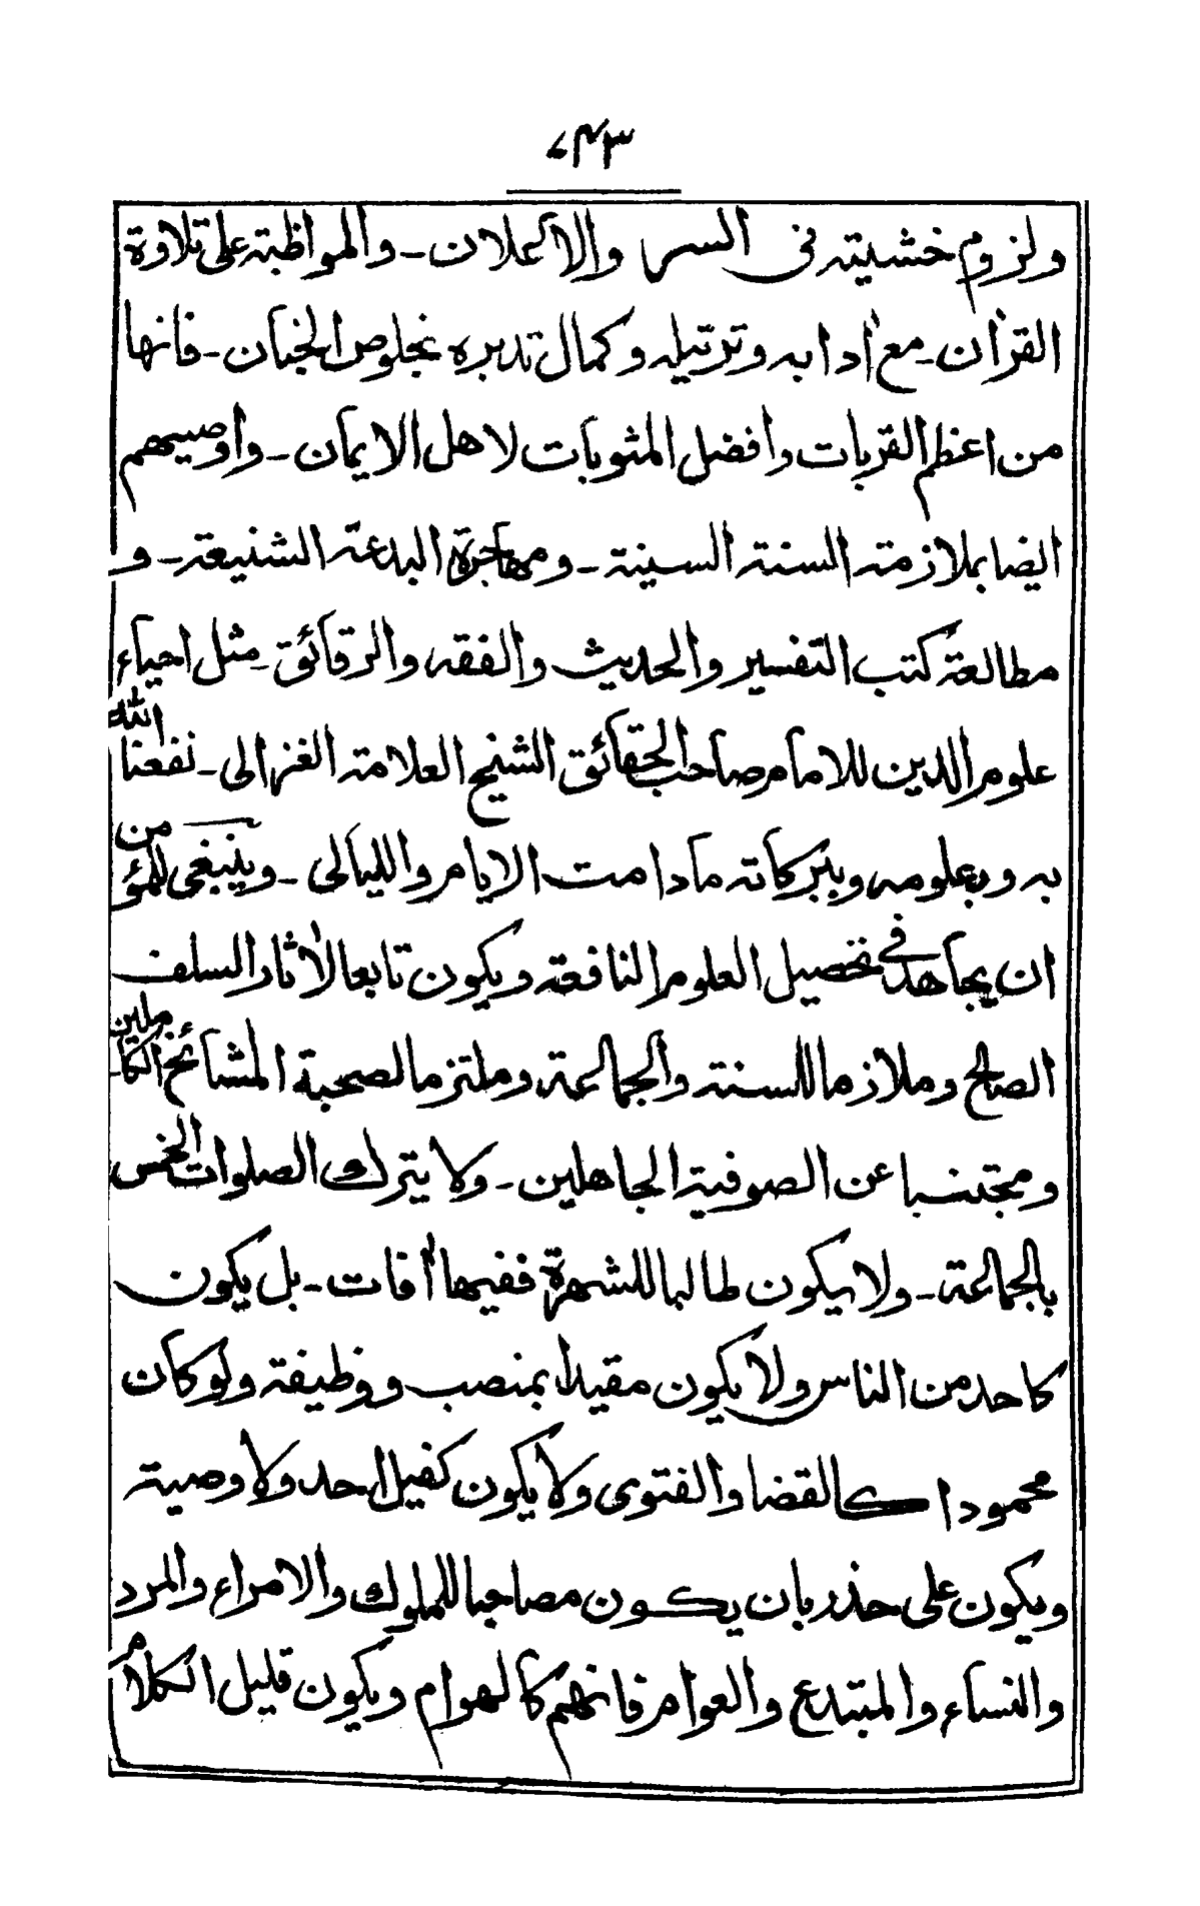 ۷۴۳
ولزوم خشيته فى السر والاعلان ـ والمواظبة على تلاوة
القرآن ـ مع اٰدابه وترتيله وكمال تدبره بخلوص الجنان ـ فانها
من اعظم القربات وافضل المثوبات لاهل الايمان ـ واوصيهم
ايضا بملازمة السنة السنية ـ ومهاجرة البدعة الشنيعة ـ و
مطالعة كتب التفسير والحديث والفقه والرقائق ـ مثل احياء
علوم الدين للامام صاحب الحقائق الشيخ العلامة الغزالى ـ نفعنا الله
به وبعلومه وببركاته مادامت الايام والليالى ـ وينبغى للمؤمن
ان يجاهد فى تحصيل العلوم النافعة ويكون تابعا لاٰثار السلف
الصالح وملازما للسنة والجماعة وملتزما لصحبة المشائخ الكاملين
ومجتنبا عن الصوفية الجاهلين ـ ولا يترك الصلوات الخمس
بالجماعة ـ ولا يكون طالبا للشهرة ففيها اٰفات ـ بل يكون
كاحد من الناس ولا يكون مقيدا بمنصب ووظيفة ولو كان
محمودا كالقضا والفتوى ولا يكون كفيل احد ولا وصية
ويكون على حذر بان يكون مصاحبا للملوك والامراء والمرد
والنساء والمبتدع والعوام فانهم كالهوام ويكون قليل الكلام